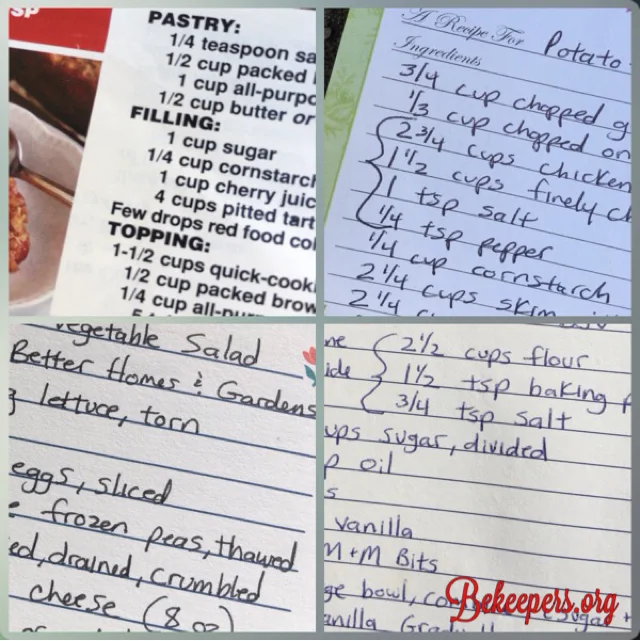 SP
PASTRY:
1/4 teaspoon sa
1/2 cup packed
1 cup all-purpo
1/2 cup butter or
FILLING:
1 cup sugar
1/4 cup cornstarch
1 cup cherry juic
4 cups pitted tart
Few drops red food co
TOPPING:
1-1/2 cups quick-cook
1/2 cup packed brow
1/4 cup all-pur
A Recipe For Potato
Ingredients
3/4 cup chopped g
1/3 cup chopped on
2 3/4 cups chicken
1 1/2 cups finely ch
1 tsp salt
1/4 tsp pepper
1/4 cup cornstarch
2 1/4 cups skim
2 1/4 c
Vegetable Salad
Better Homes & Gardens
lettuce, torn
eggs, sliced
frozen peas, thawed
ed, drained, crumbled
cheese (8 oz)
ne 2 1/2 cups flour
ide 1 1/2 tsp baking p
3/4 tsp salt
ups sugar, divided
p oil
s
vanilla
M+M Bits
ge bowl, co sugar +
anilla Gradu
Bekeepers.org